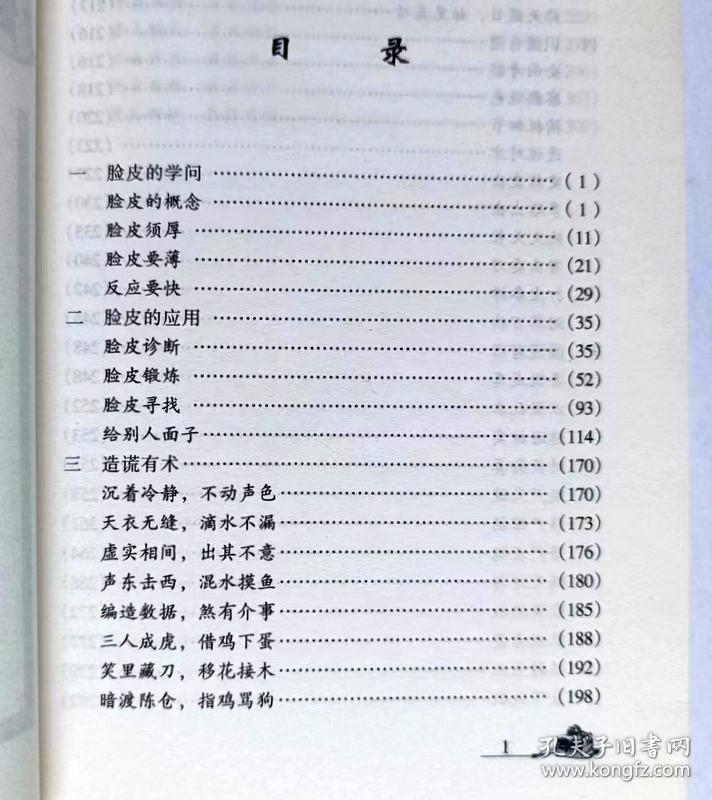 目 录
一 脸皮的学问……………………………………(1)
脸皮的概念……………………………………(1)
脸皮须厚……………………………………(11)
脸皮要薄……………………………………(21)
反应要快……………………………………(29)
二 脸皮的应用……………………………………(35)
脸皮诊断……………………………………(35)
脸皮锻炼……………………………………(52)
脸皮寻找……………………………………(93)
给别人面子……………………………………(114)
三 造谎有术……………………………………(170)
沉着冷静，不动声色……………………………(170)
天衣无缝，滴水不漏……………………………(173)
虚实相间，出其不意……………………………(176)
声东击西，混水摸鱼……………………………(180)
编造数据，煞有介事……………………………(185)
三人成虎，借鸡下蛋……………………………(188)
笑里藏刀，移花接木……………………………(192)
暗渡陈仓，指鸡骂狗……………………………(198)
1
孔夫子旧书网
www.kongfz.com